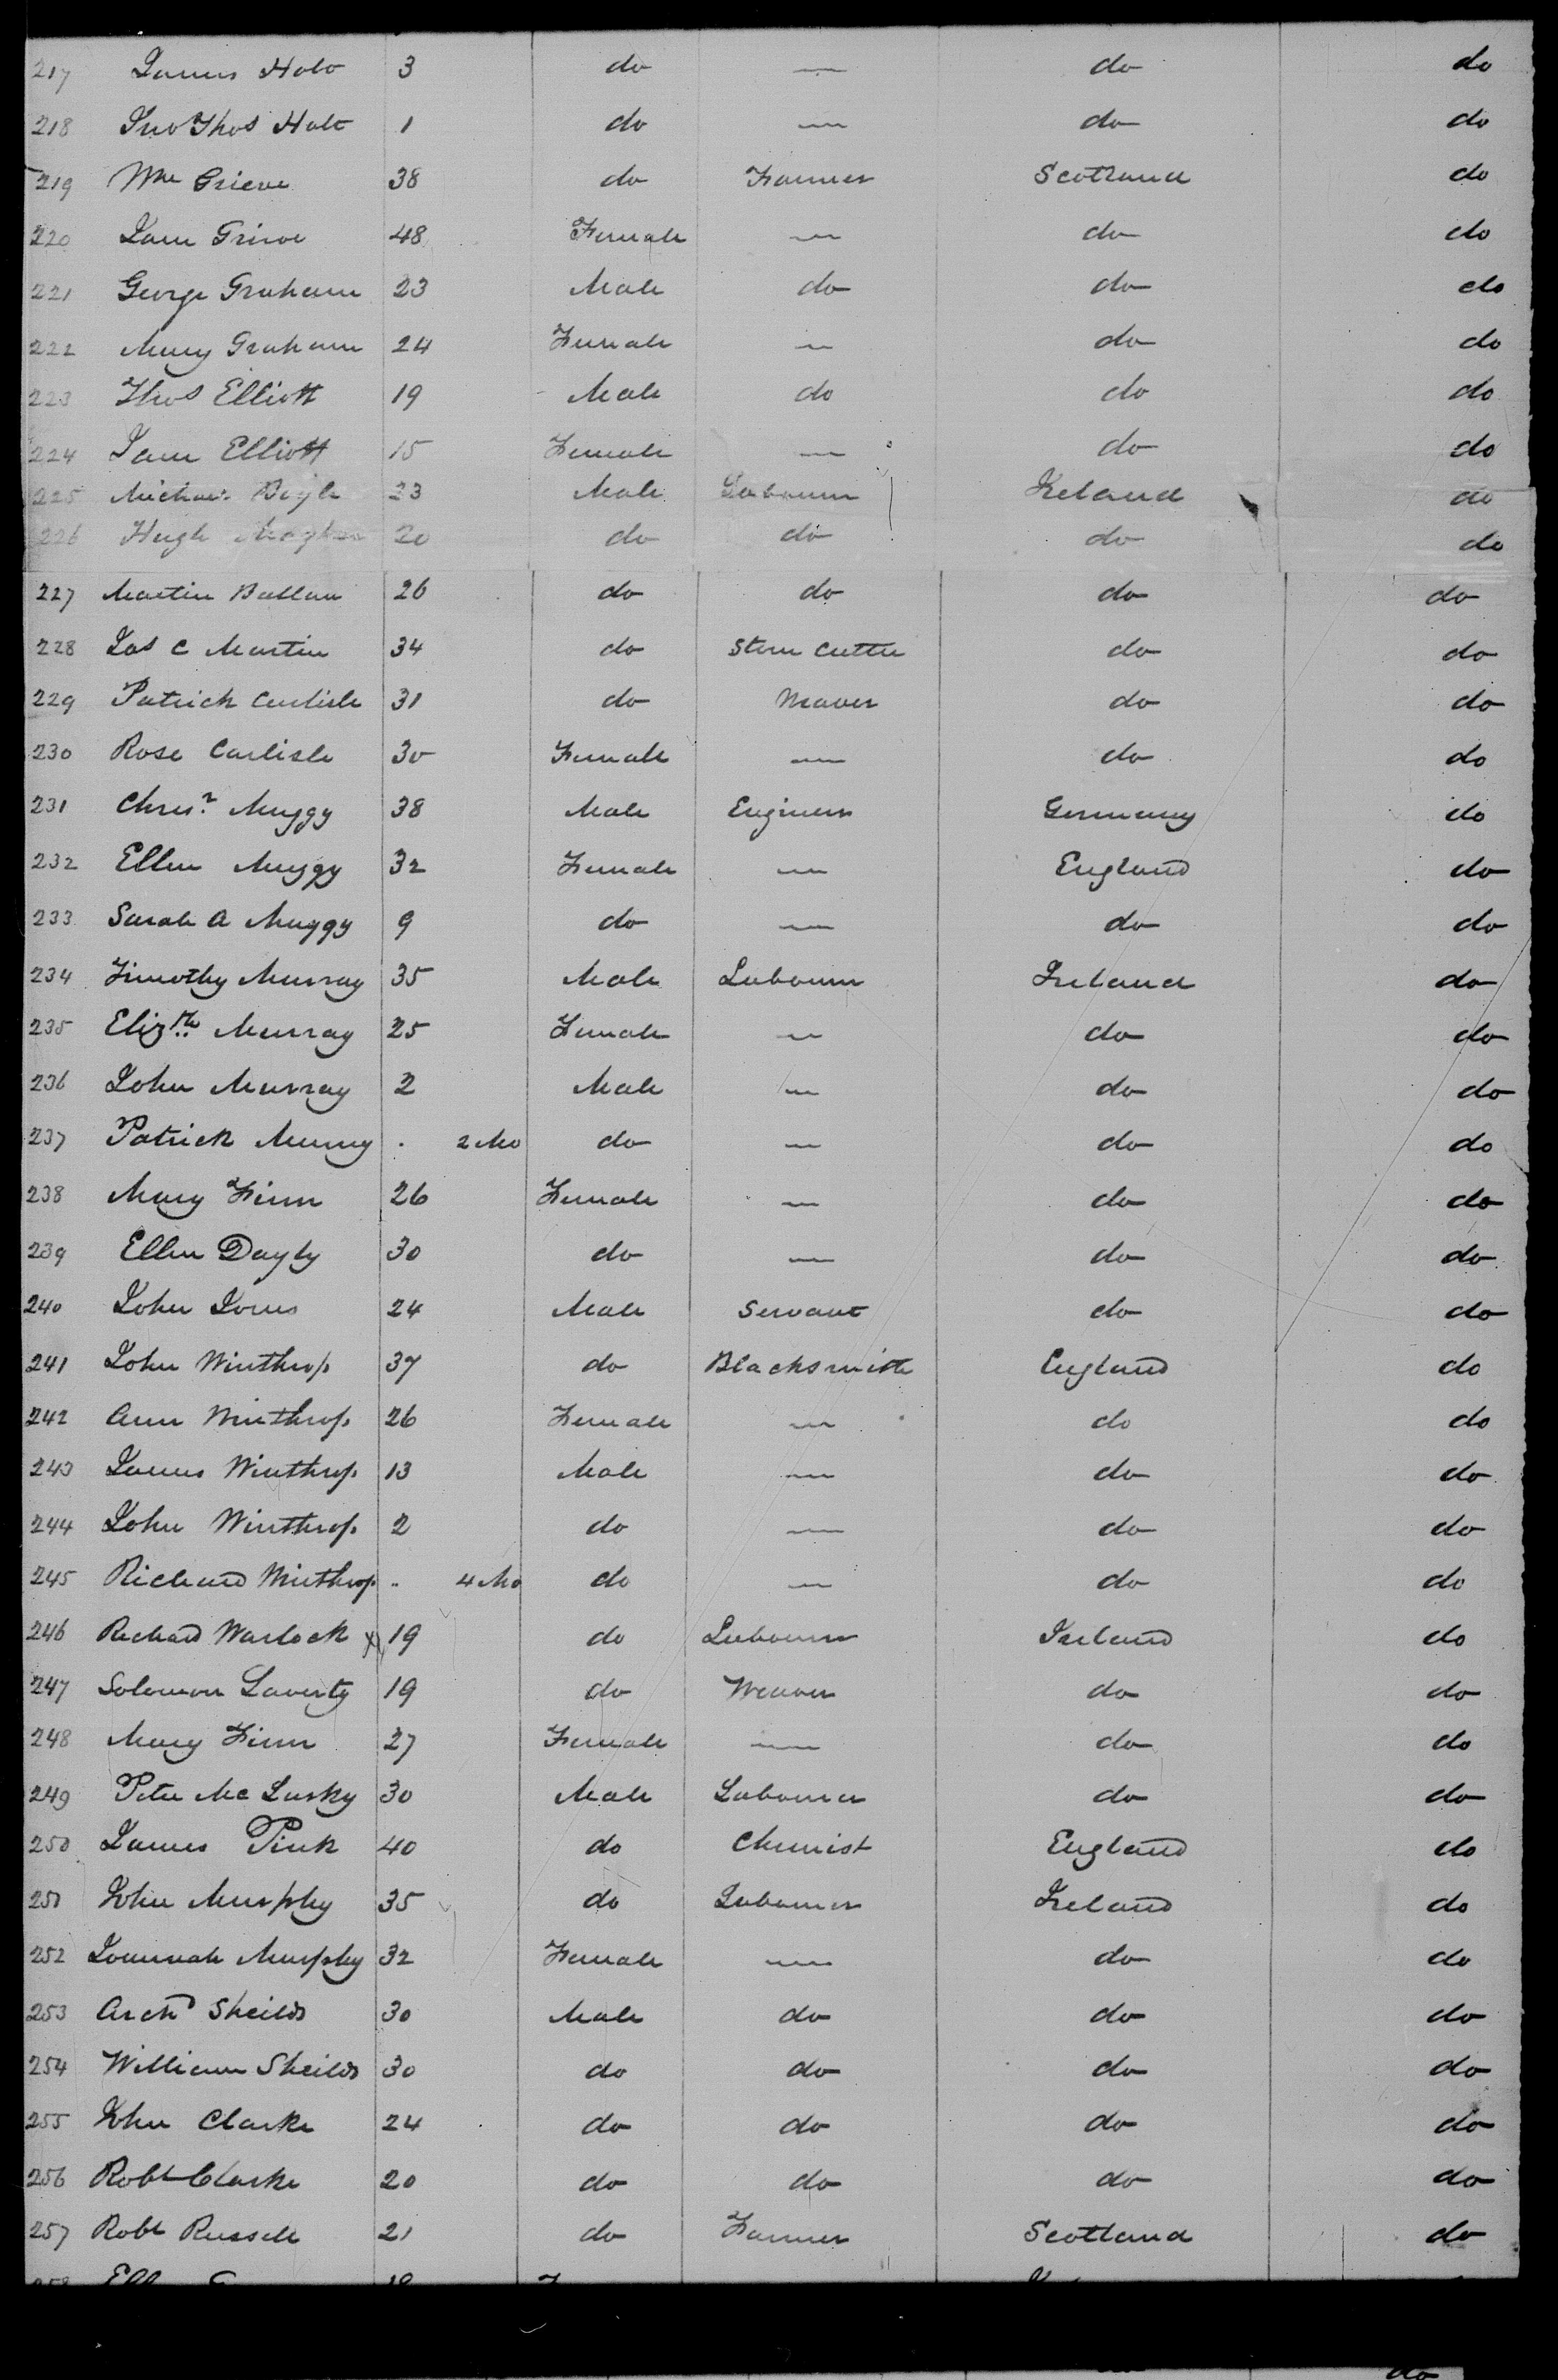 217 James Holt 3 do — do do
218 Jno Thos Holt 1 do — do do
219 Wm Grieve 38 do Farmer Scotland do
220 Jane Grieve 48 Female — do do
221 George Graham 23 Male do do do
222 Mary Graham 24 Female — do do
223 Thos Elliott 19 Male do do do
224 Jane Elliott 15 Female — do do
225 Michael Boyle 23 Male Labourer Ireland do
226 Hugh 20 do do do do
227 Martin 26 do do do do
228 Jas C Martin 34 do Stone Cutter do do
229 Patrick Carlisle 31 do Weaver do do
230 Rose Carlisle 30 Female — do do
231 Chrisr Muggy 38 Male Engineer Germany do
232 Ellen Muggy 32 Female — England do
233 Sarah A Muggy 9 do — do do
234 Timothy Murray 35 Male Labourer Ireland do
235 Elizth Murray 25 Female — do do
236 John Murray 2 Male — do do
237 Patrick Murray . 2 Mo do — do do
238 Mary Finn 26 Female — do do
239 Ellen Dayly 30 do — do do
240 John Jones 24 Male Servant do do
241 John Winthrop 37 do Blacksmith England do
242 Ann Winthrop 26 Female — do do
243 James Winthrop 13 Male — do do
244 John Winthrop 2 do — do do
245 Richard Winthrop .. 4 Mo do — do do
246 Richard Warlock X 19 do Labourer Ireland do
247 Solomon Laverty 19 do Weaver do do
248 Mary Finn 27 Female — do do
249 Peter Mc Lusky 30 Male Labourer do do
250 James Pink 40 do Chemist England do
251 John Murphy 35 do Labourer Ireland do
252 Joannah Murphy 32 Female — do do
253 Archd Sheilds 30 Male do do do
254 William Sheilds 30 do do do do
255 John Clarke 24 do do do do
256 Robt Clarke 20 do do do do
257 Robt Russell 21 do Farmer Scotland do